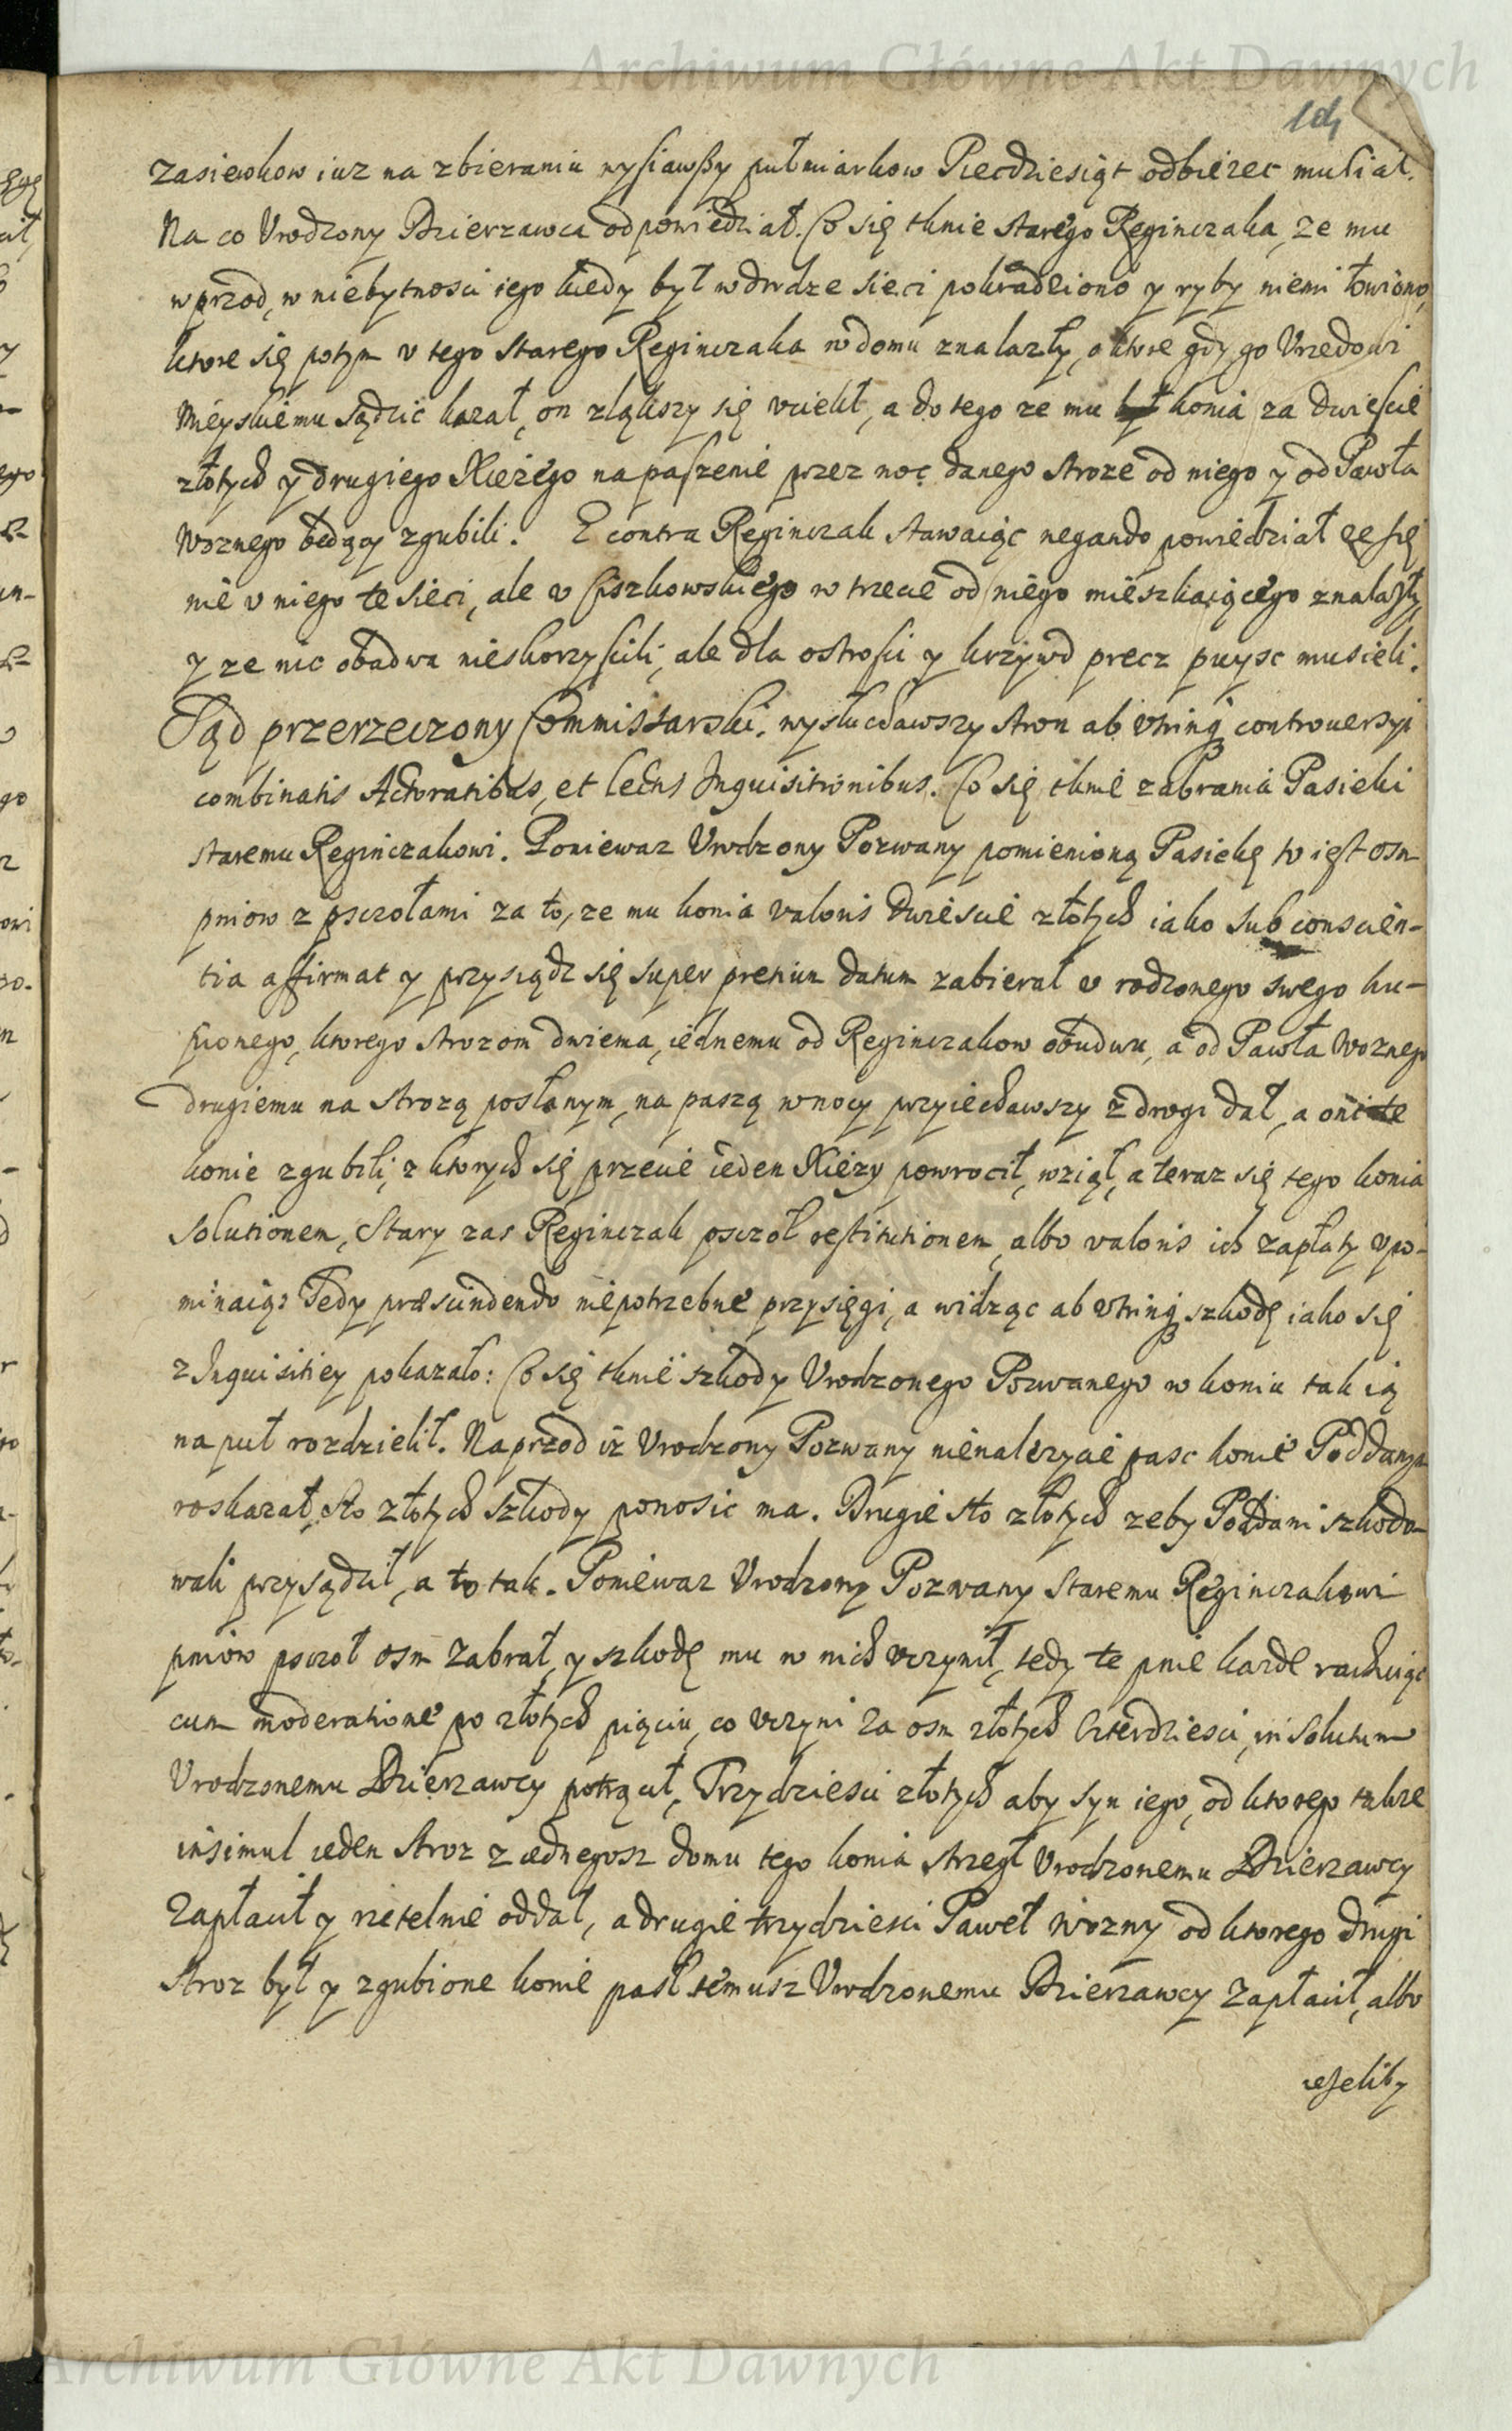 Archiwum Główne Akt Dawnych
104
zasiewkow iuz na zbieraniu wysiawszy pułmiarkow Piecdziesiąt odbiezec musiał.
Na co Vrodzony Dzierzawca odpowiedział. Co się tknie starego Reginczaka, ze mu
wprzod, w niebytnosci iego kiedy był w drodze sieci pokradziono y ryby niemi łowiono,
ktore się potym v tego starego Reginczaka w domu znalazły, o ktore gdy go Vrzedowi
Mieyskiemu sądzic kazał, on zląkszy się vciekł, a do tego ze mu konia za dwiescie
złotych y drugiego Xięzego na paszenie przez noc danego stroze od niego y od Pawła
Woznego będący zgubili. E contra Reginczak stawaiąc negando powiedział ze się
nie v niego te sieci, ale v Ciszkowskiego w trzecie od niego mieszkaiącego znalazły,
y ze nic obadwa nieskorzyscili, ale dla ostrosci y krzywd precz puysc musieli.
Sąd przerzeczony Commissarski. wysłuchawszy stron ab vtrinq controuersyi
combinatis Actoratibus, et lectis Inquisitionibus. Co się tknie zabrania Pasieki
staremu Reginczakowi. Poniewaz Vrodzony Pozwany pomienioną Pasiekę to iest osm
pniow z psczołami za to, ze mu konia valoris dwiescie złotych iako sub conscien-
tia affirmat y przysiądz się super pretium datum zabierał v rodzonego swego ku-
pionego, ktorego strozom dwiema, iednemu od Reginczakow obudwu, a od Pawła Woznego
drugiemu na strozą posłanym, na paszą w nocy przyiechawszy z drogi dał, a oni te
konie zgubili, z ktorych się przecie ieden Xięzy powrocił, wziął, a teraz się tego konia
solutionem, Stary zas Reginczak psczoł restitutionem, albo valoris ich zapłaty vpo-
minaią: Tedy præscindendo niepotrzebne przysięgi, a widząc ab vtrinq szkodę iako się
z Inquisitiey pokazało: Co się tknie szkody Vrodzonego Pozwanego w koniu tak ią
na puł rozdzielił. Naprzod iz Vrodzony Pozwany nienalezycie pasc konie Poddanym
roskazał, sto złotych szkody ponosic ma. Drugie sto złotych zeby Poddani szkodo-
wali przysądził, a to tak. Poniewaz Vrodzony Pozwany Staremu Reginczakowi
pniow psczoł osm zabrał, y szkodę mu w nich vczynił, tedy te pnie kazde rachuiąc
cum moderatione po złotych pięciu, co vczyni za osm złotych czterdziesci, in solutum
Vrodzonemu Dzierzawcy potrącił, Trzydziesci złotych aby syn iego, od ktorego takze
insimul ieden stroz z iednegosz domu tego konia strzegł Vrodzonemu Dzierzawcy
Zapłacił y rzetelnie oddał, a drugie trzydziesci Paweł Wozny od ktorego drugi
stroz był y zgubione konie pasł temusz Vrodzonemu Dzierzawcy Zapłacił, albo
ieseliby
Archiwum Główne Akt Dawnych